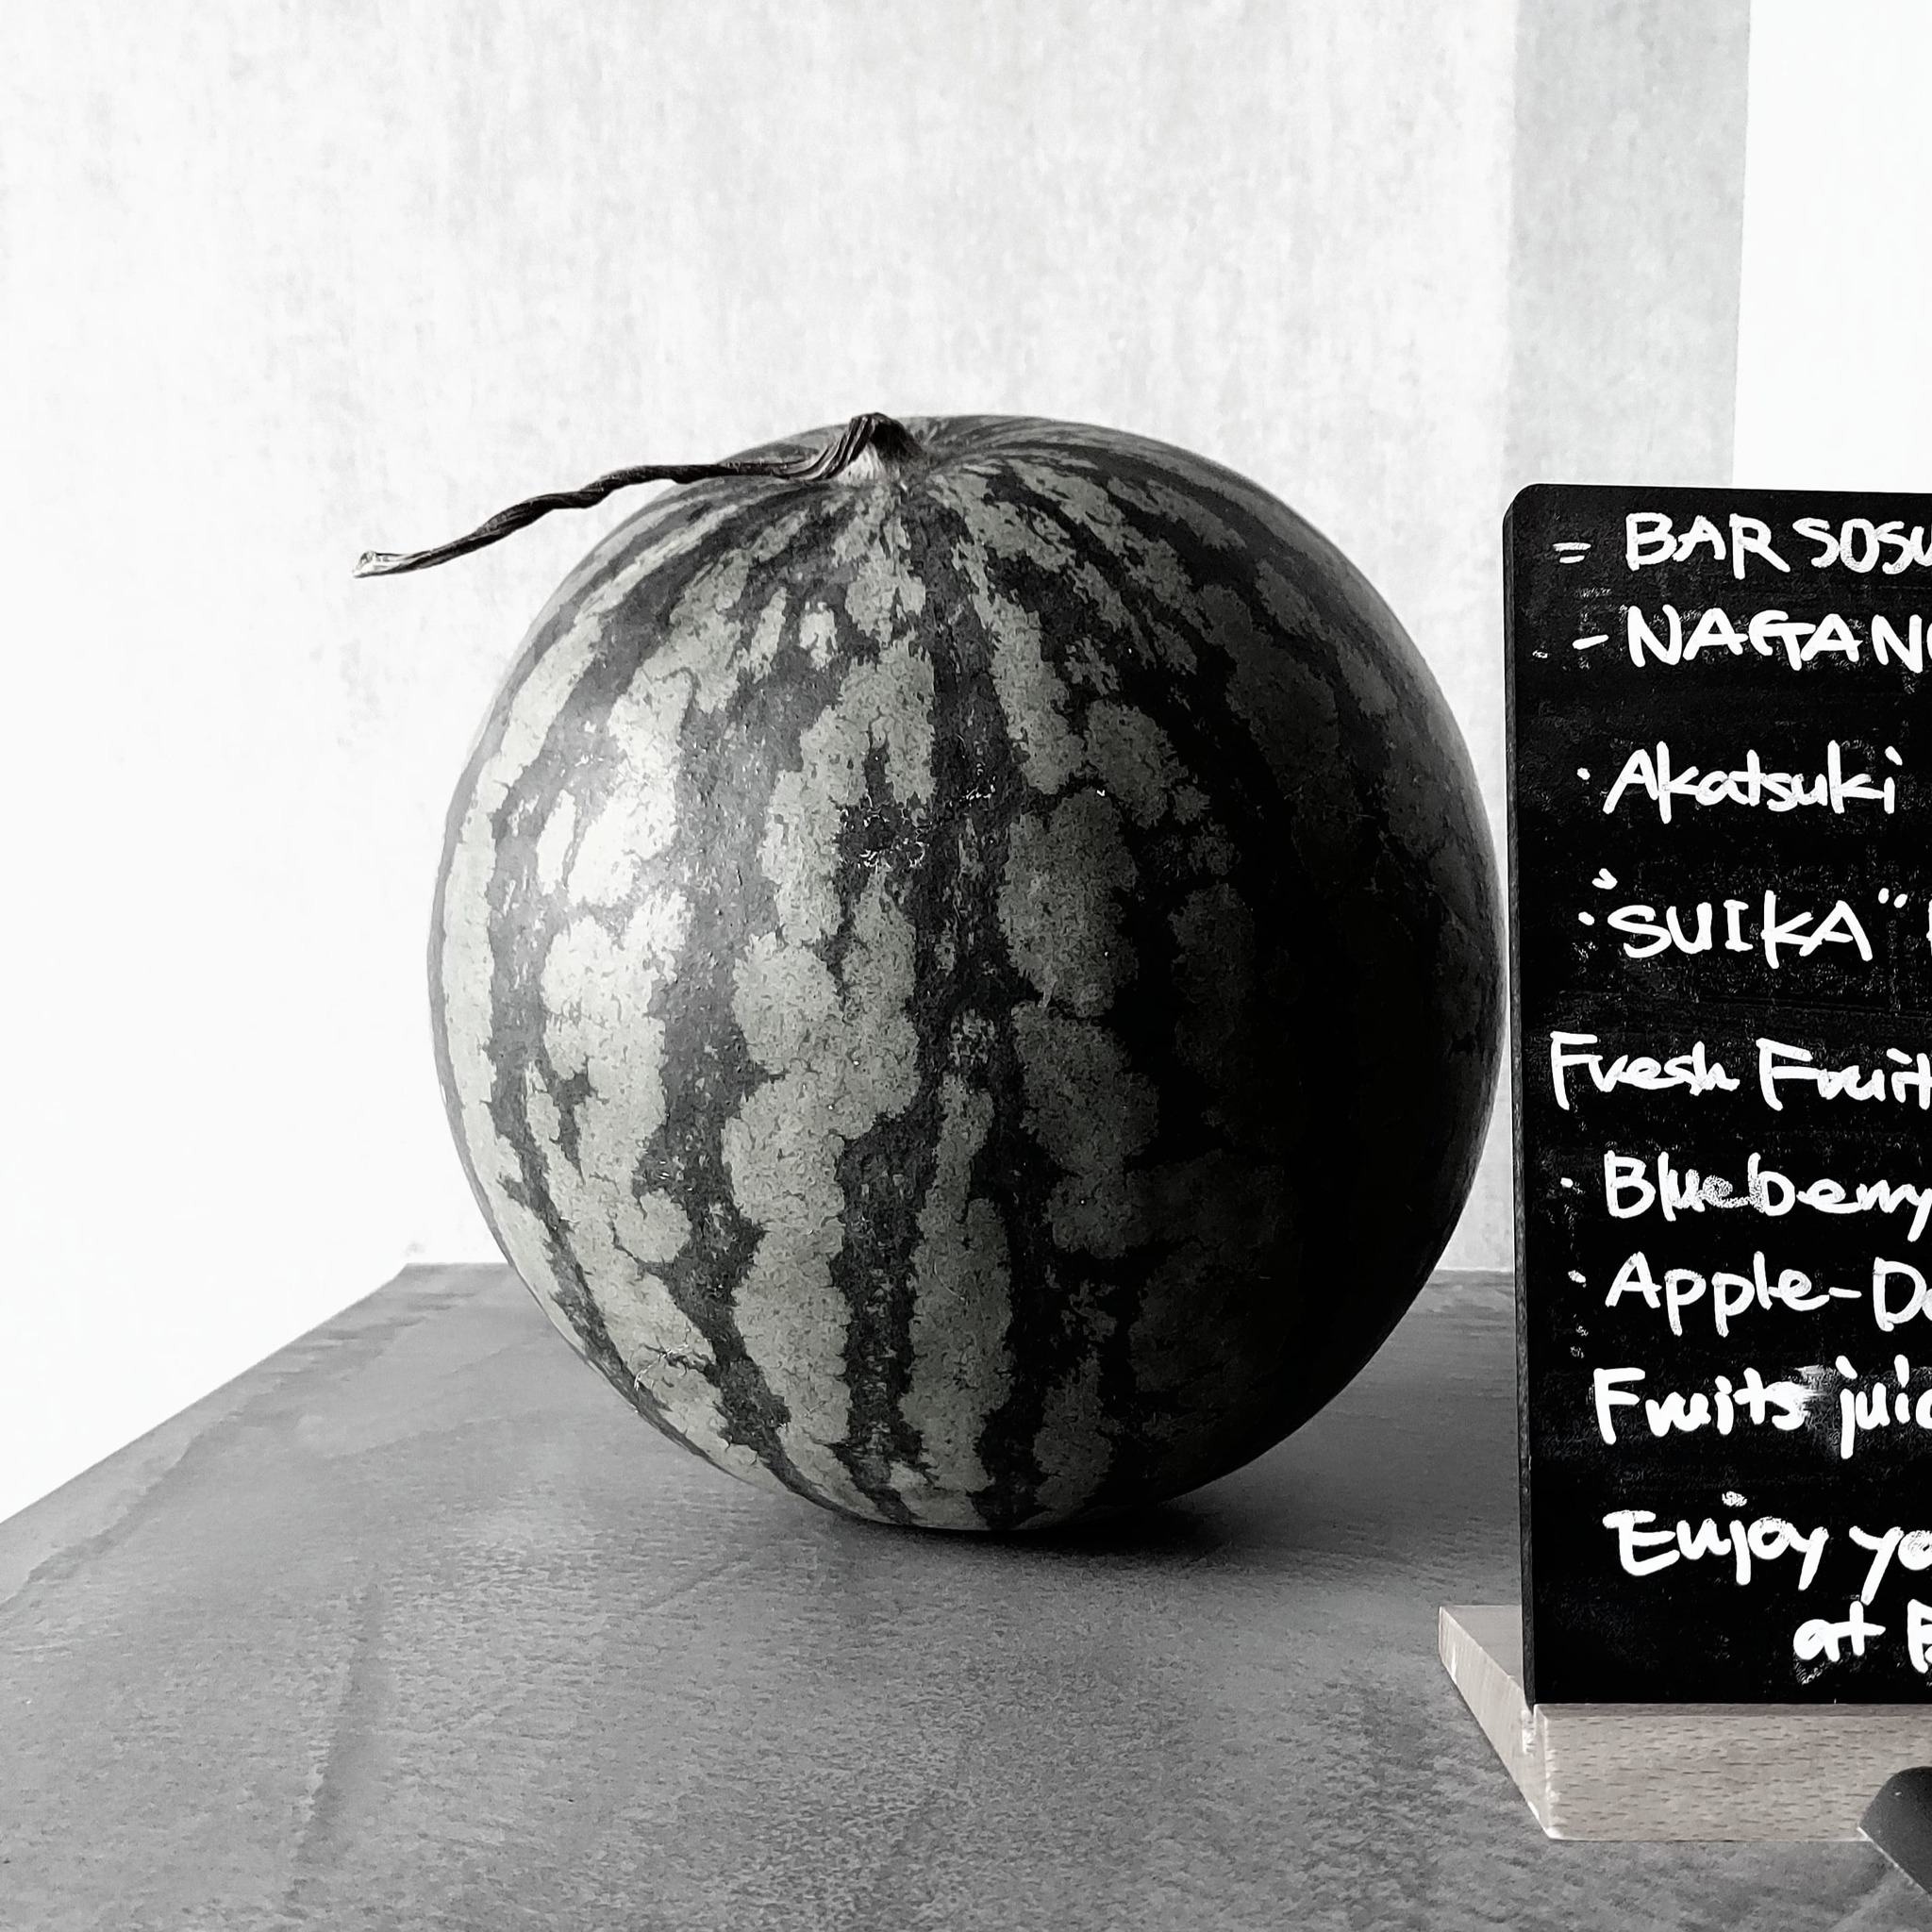 = BAR SOSU
- NAGANO
· Akatsuki
· "SUIKA"
Fresh Fruit
· Blueberry
· Apple-D
Fruits juic
Enjoy yo
at B